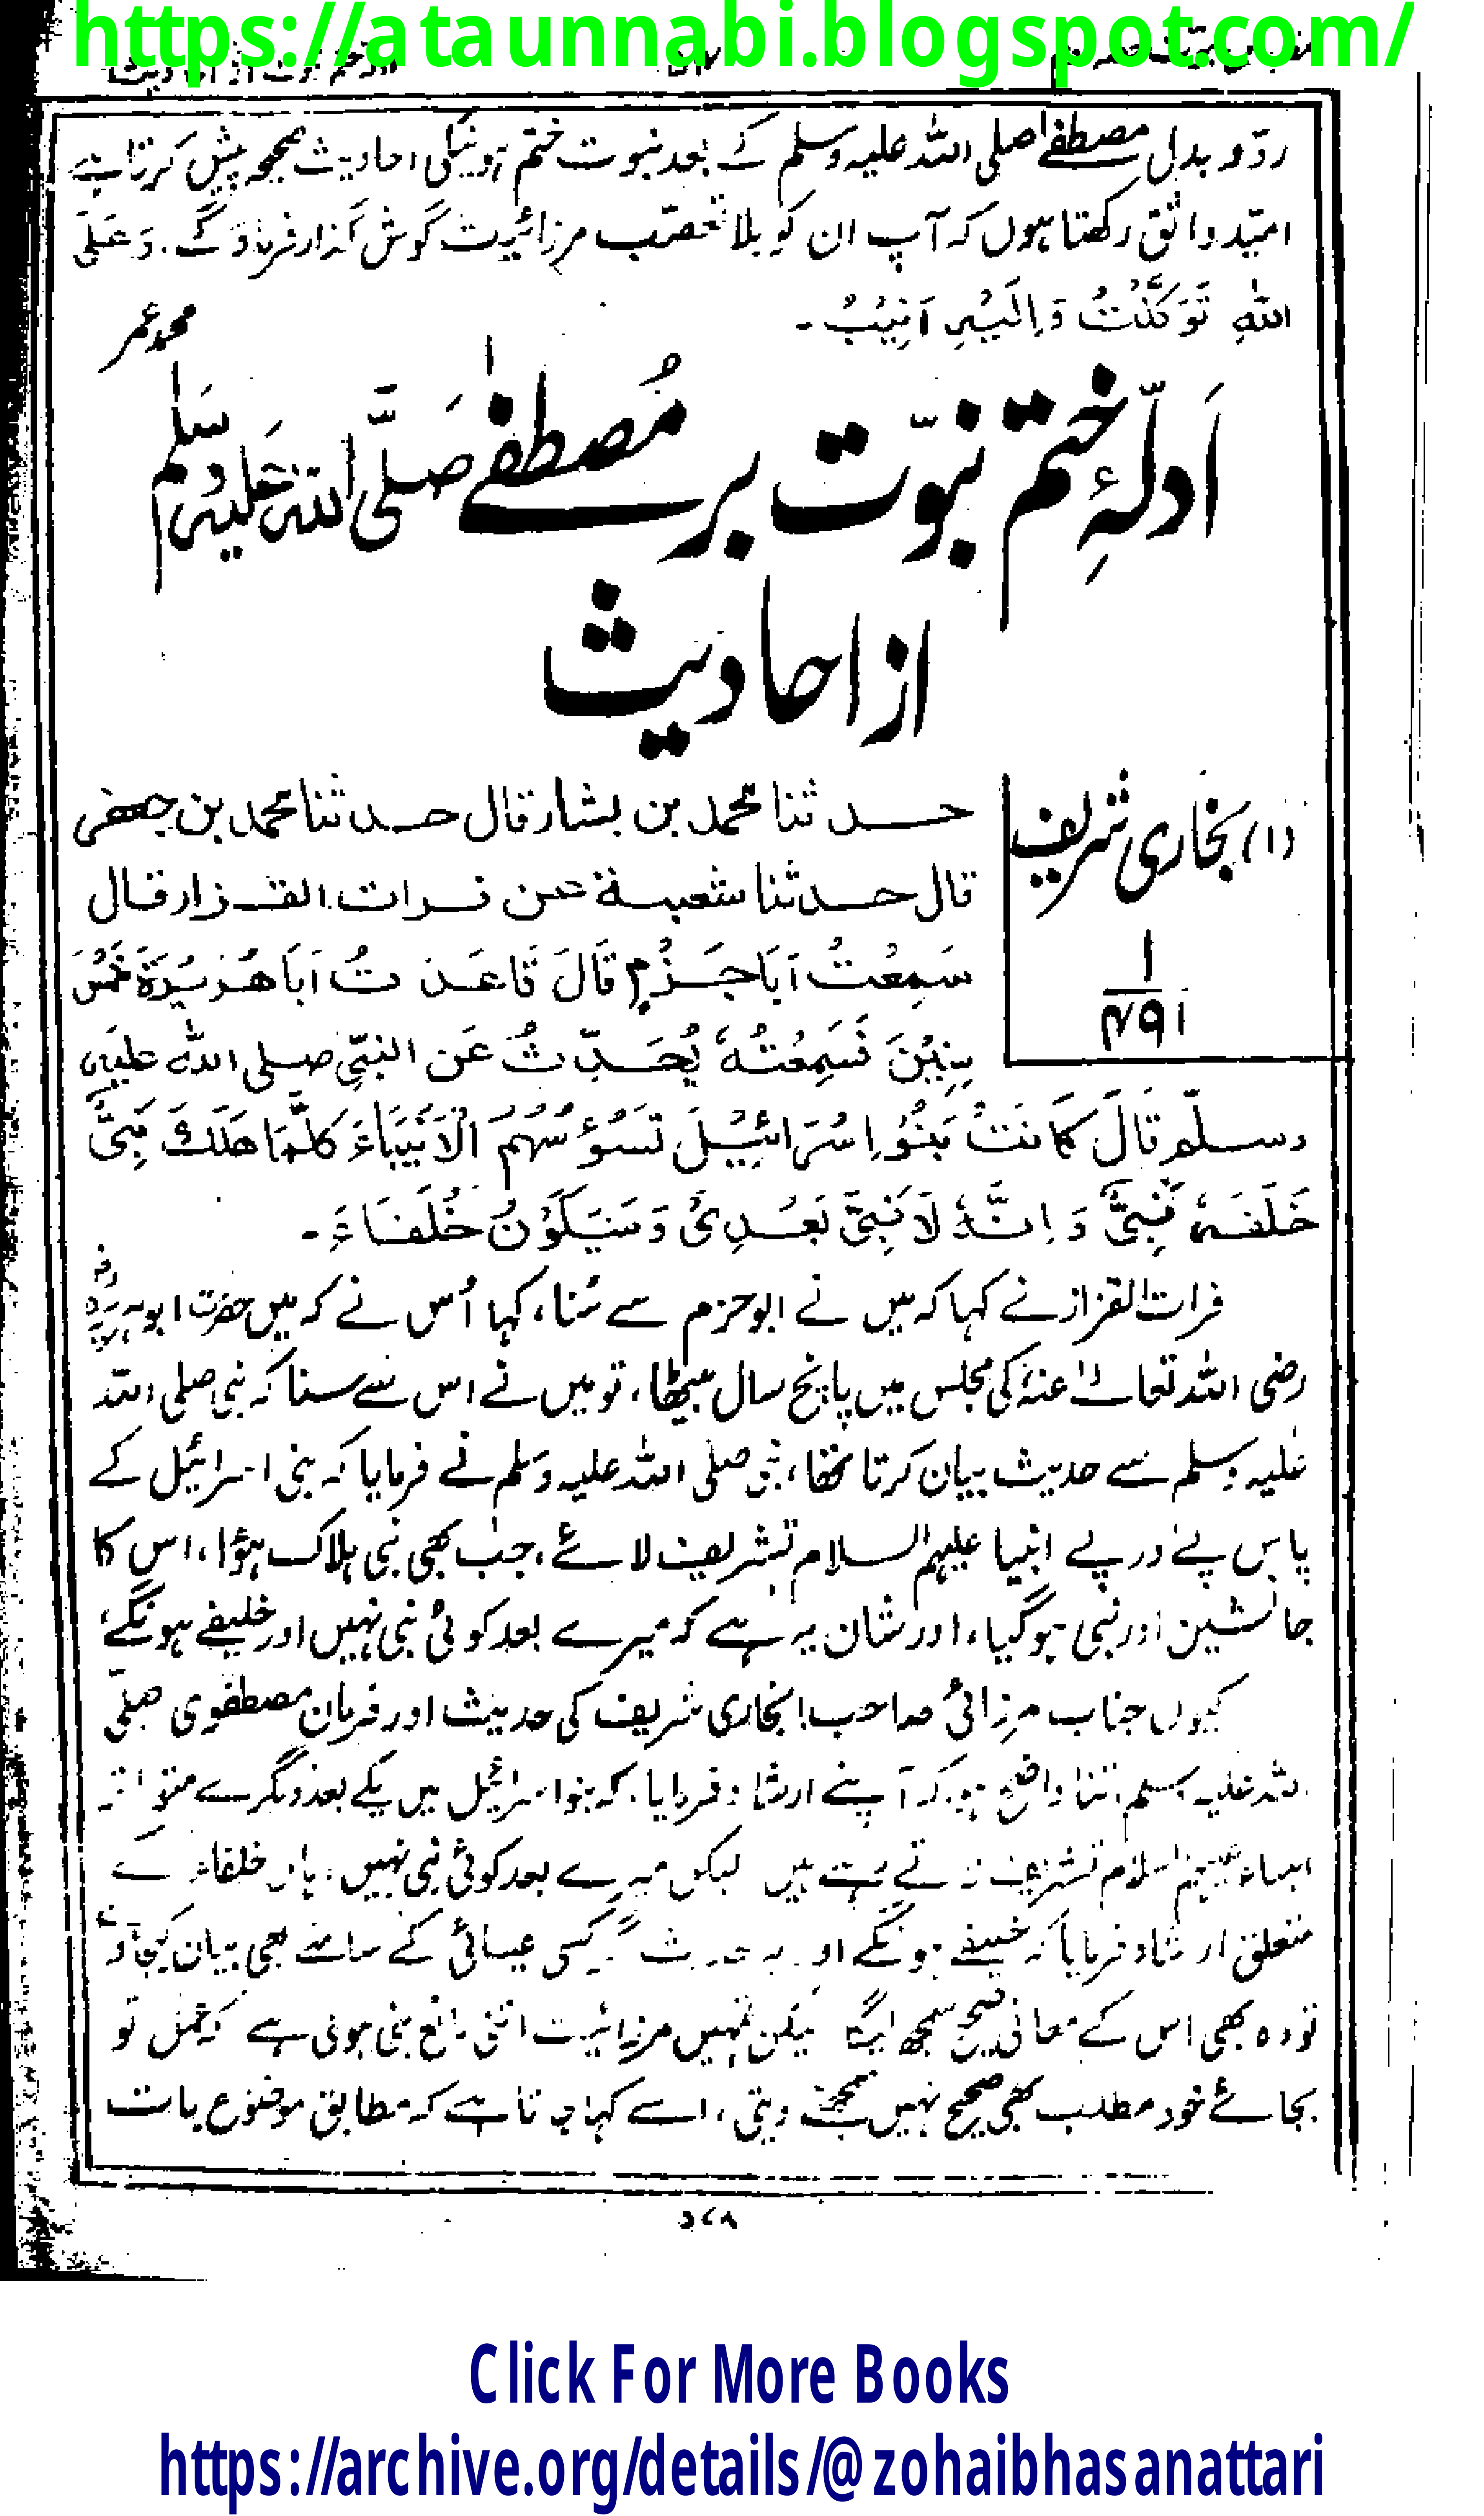 https://ataunnabi.blogspot.com/
ردّ و بدل مصطفےٰ صلی اللہ علیہ وسلم کے بعد نبوت ختم ہونیکی احادیث صحیحہ پیش کرتا ہے
امیّد واثق رکھتا ہوں کہ آپ ان کو بلا تعصّب مرزائیت گوش گذار فرمادَ گے۔ وَعَلَی
اللہِ تَوَکَّلْتُ وَاِلَیْہِ اُنِیْبُ۔
محمد عمر
اَدلّۂِ ختم نبوّت بر مُصطفےٰ صَلَّی اللہ عَلیہِ وسَلم
از احادیث
(۱) بخاری شریف
۱
۴۹۱
حدثنا محمد بن بشار قال حدثنا محمد بن جعفر
قال حدثنا شعبة عن فرات القزاز قال
سَمِعْتُ اَبَا حَزْمٍ قَالَ قَاعَدْتُ اَبَا هُرَیْرَةَ خَمْسَ
سِنِیْنَ فَسَمِعْتُهٗ یُحَدِّثُ عَنِ النبیِّ صلی اللہ علیہ
وسلّم قَالَ کَانَتْ بَنُوْا اِسْرَائِیْلَ تَسُوْسُهُمُ الْاَنْبِیَاءُ کُلَّمَا هَلَكَ نَبِیٌّ
خَلَفَهٗ نَبِیٌّ وَاِنَّهٗ لَا نَبِیَّ بَعْدِیْ وَسَیَکُوْنُ خُلَفَاءُ۔
فرات القزاز نے کہا کہ میں نے ابو حزم سے سُنا، کہا اُس نے کہ میں حضرت ابو ہریرہ رض
رضی اللہ تعالےٰ عنہٗ کی مجلس میں پانچ سال بیٹھا، تو میں نے اس سے سنا کہ نبی صلی اللہ
علیہ وسلم سے حدیث بیان کرتا تھا، نبی صلی اللہ علیہ وسلم نے فرمایا کہ بنی اسرائیل کے
پاس پے درپے انبیا علیہم السلام تشریف لائے، جب بھی نبی ہلاک ہؤا، اس کا
جانشین اور نبی ہو گیا، اور شان یہ ہے کہ میرے بعد کوئی نبی نہیں اور خلیفے ہونگے
کیوں جناب مرزائی صاحب! بخاری شریف کی حدیث اور فرمان مصطفوی صلّی
اللہ علیہ وسلم اتنا واضح ہو کہ آپنے ارشاد فرمایا، کہ بنو اسرائیل میں یکے بعد دیگرے متواتر
انبیاء علیہم السلام تشریف لاتے رہے ہیں لیکن میرے بعد کوئی نبی نہیں، ہاں خلفاء کے
متعلق ارشاد فرمایا کہ خلیفے ہونگے اور یہ حدیث اگر کسی عیسائی کے سامنے بھی بیان کیجاوے
تو وہ بھی اس کے معانی صحیح سمجھ لیگا لیکن تمہیں مرزائیت اتنی مانع بنی ہوئی ہے کہ عمل تو
بجائے خود مطلب بھی صحیح نہیں سمجھنے دیتی، اسے کہا جاتا ہے کہ مطابق موضوع بات
Click For More Books
https://archive.org/details/@zohaibhasanattari